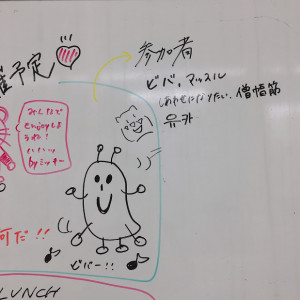 催予定
参加者
ビバ、マッスル
しあわせになりたい、僧帽筋
유카
みんなで
enjoyしよ
うね!
ハハッ
byミッキー
何だ!!
ビバー!!
LUNCH